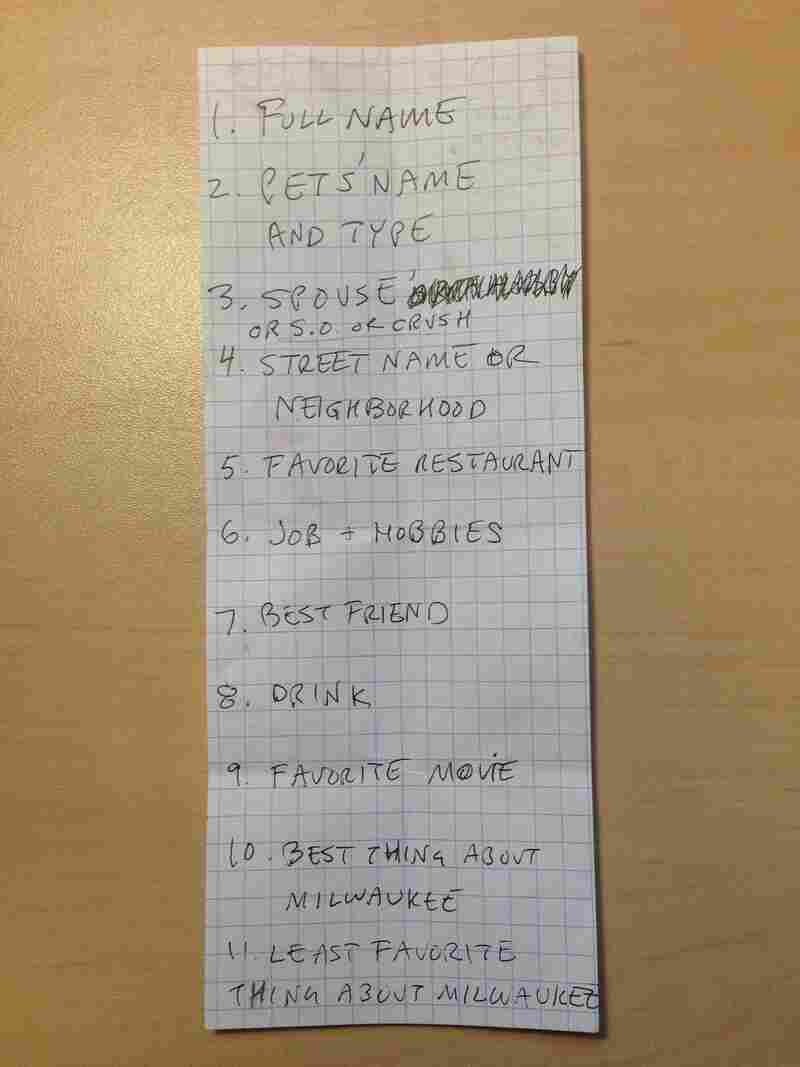 1. FULL NAME
2. PETS' NAME
AND TYPE
3. SPOUSE'
OR S.O OR CRUSH
4. STREET NAME OR
NEIGHBORHOOD
5. FAVORITE RESTAURANT
6. JOB + HOBBIES
7. BEST FRIEND
8. DRINK
9. FAVORITE MOVIE
10. BEST THING ABOUT
MILWAUKEE
11. LEAST FAVORITE
THING ABOUT MILWAUKEE